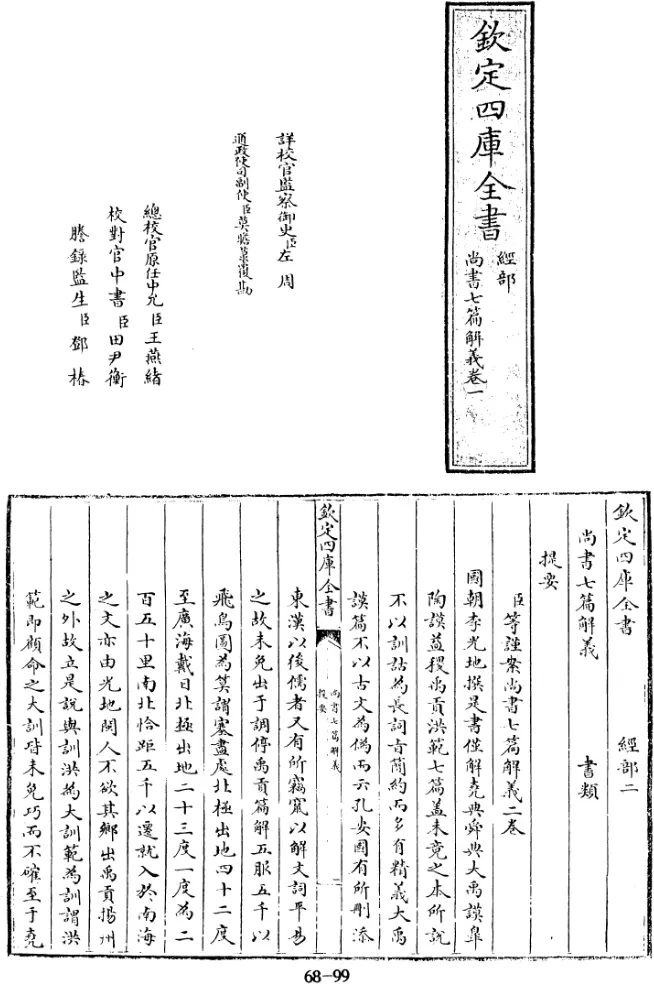 欽定四庫全書
經部
尚書七篇解義卷一
詳校官監察御史臣左周
通政使司副使臣莫瞻菉覆勘
總校官原任中允臣王燕緒
校對官中書臣田尹衡
謄錄監生臣鄧椿
欽定四庫全書 經部二
尚書七篇解義 書類
提要
臣等謹案尚書七篇解義二卷
國朝李光地撰是書僅解堯典舜典大禹謨臯
陶謨益稷禹貢洪範七篇蓋未竟之本所說
不以訓詁為長詞旨簡約而多有精義大禹
謨篇不以古文為僞而云孔安國有所刪添
欽定四庫全書
尚書七篇解義
提要
東漢以後儒者又有所竄竄以解文詞平易
之故未免出于調停禹貢篇解五服五千以
飛鳥圖為算謂塞盡處北極出地四十二度
至廣海戴日北極出地二十三度一度為二
百五十里南北恰距五千以遷就入於南海
之文亦由光地閩人不欲其鄉出禹貢揚州
之外故立是説與訓洪為大訓範為訓謂洪
範即顧命之大訓皆未免巧而不確至于堯
68-99